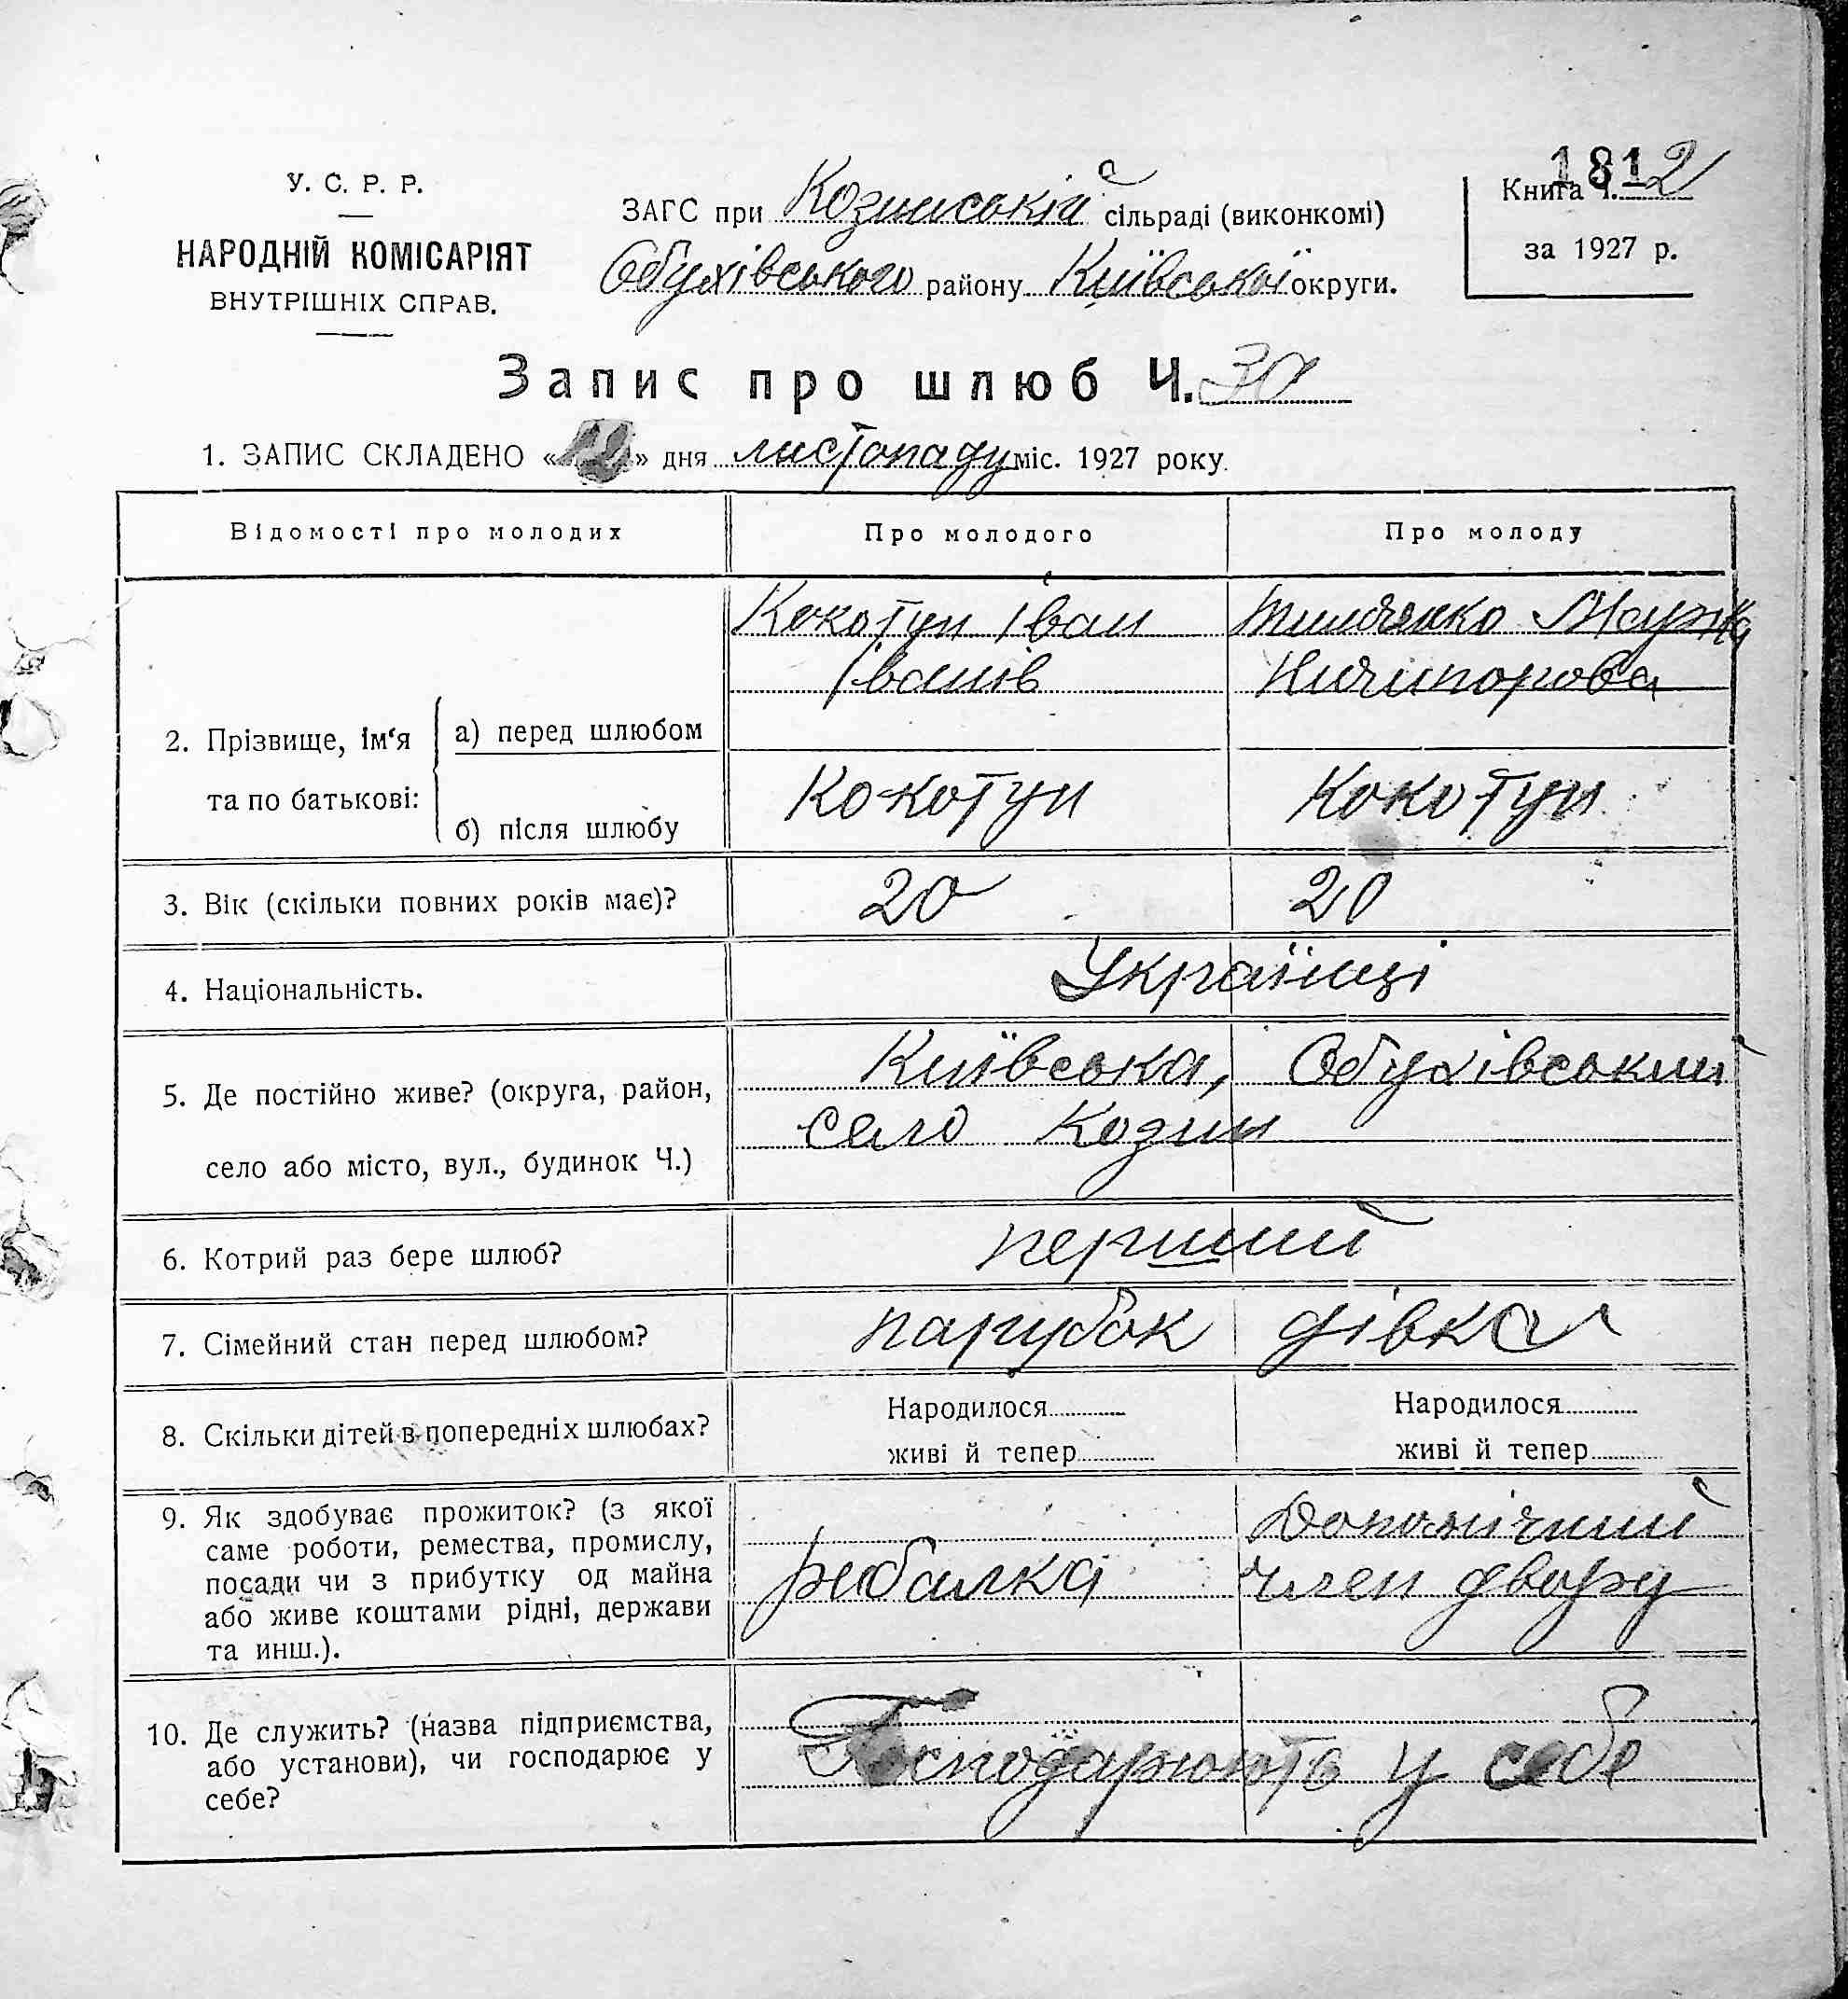 У. С. Р. Р.
НАРОДНІЙ КОМІСАРІЯТ
ВНУТРІШНІХ СПРАВ.
ЗАГС при Козинській сільраді (виконкомі)
Обухівського району Київської округи.
181
Книга Ч. 2
за 1927 р.
Запис про шлюб Ч. 30
1. ЗАПИС СКЛАДЕНО «12» дня листопаду міс. 1927 року.
Відомості про молодих
Про молодого
Про молоду
2. Прізвище, ім‘я та по батькові:
а) перед шлюбом
Кокотун Іван
Іванів
Тимченко
Ничипорова
б) після шлюбу
Кокотун
Кокотун
3. Вік (скільки повних років має)?
20
20
4. Національність.
Українці
5. Де постійно живе? (округа, район,
село або місто, вул., будинок Ч.)
Київська, Обухівський
село Козин
6. Котрий раз бере шлюб?
перший
7. Сімейний стан перед шлюбом?
парубок
дівка
8. Скільки дітей в попередніх шлюбах?
Народилося
живі й тепер
Народилося
живі й тепер
9. Як здобуває прожиток? (з якої
саме роботи, ремества, промислу,
посади чи з прибутку од майна
або живе коштами рідні, держави
та инш.).
рибалка
Допомічний
член двору
10. Де служить? (назва підприємства,
або установи), чи господарює у
себе?
Господарюють у себе